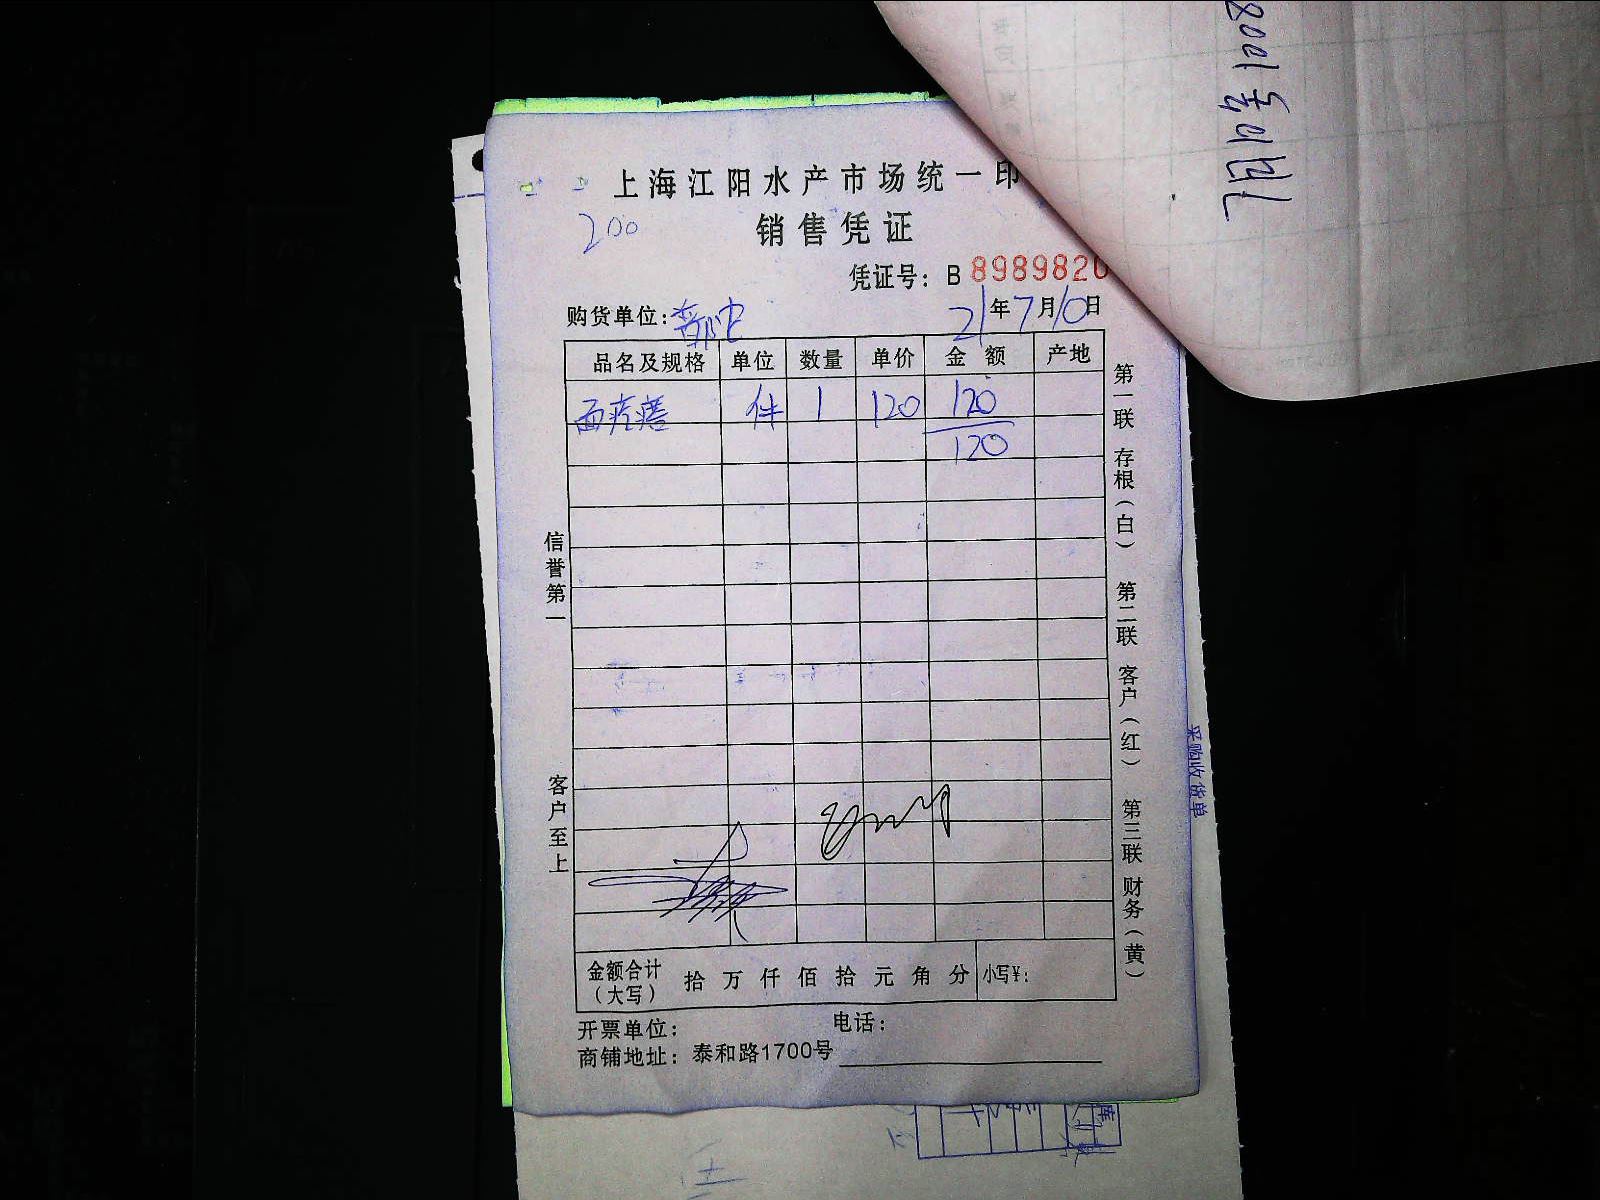 上海江阳水产市场统一印
200
销售凭证
凭证号：B 8989820
购货单位：
21年7月10日
品名及规格 单位 数量 单价 金额 产地
件 1 120 120
120
信誉第一
客户至上
第一联 存根（白） 第二联 客户（红） 第三联 财务（黄）
采购收货单
金额合计（大写） 拾 万 仟 佰 拾 元 角 分 小写¥：
开票单位： 电话：
商铺地址：泰和路1700号